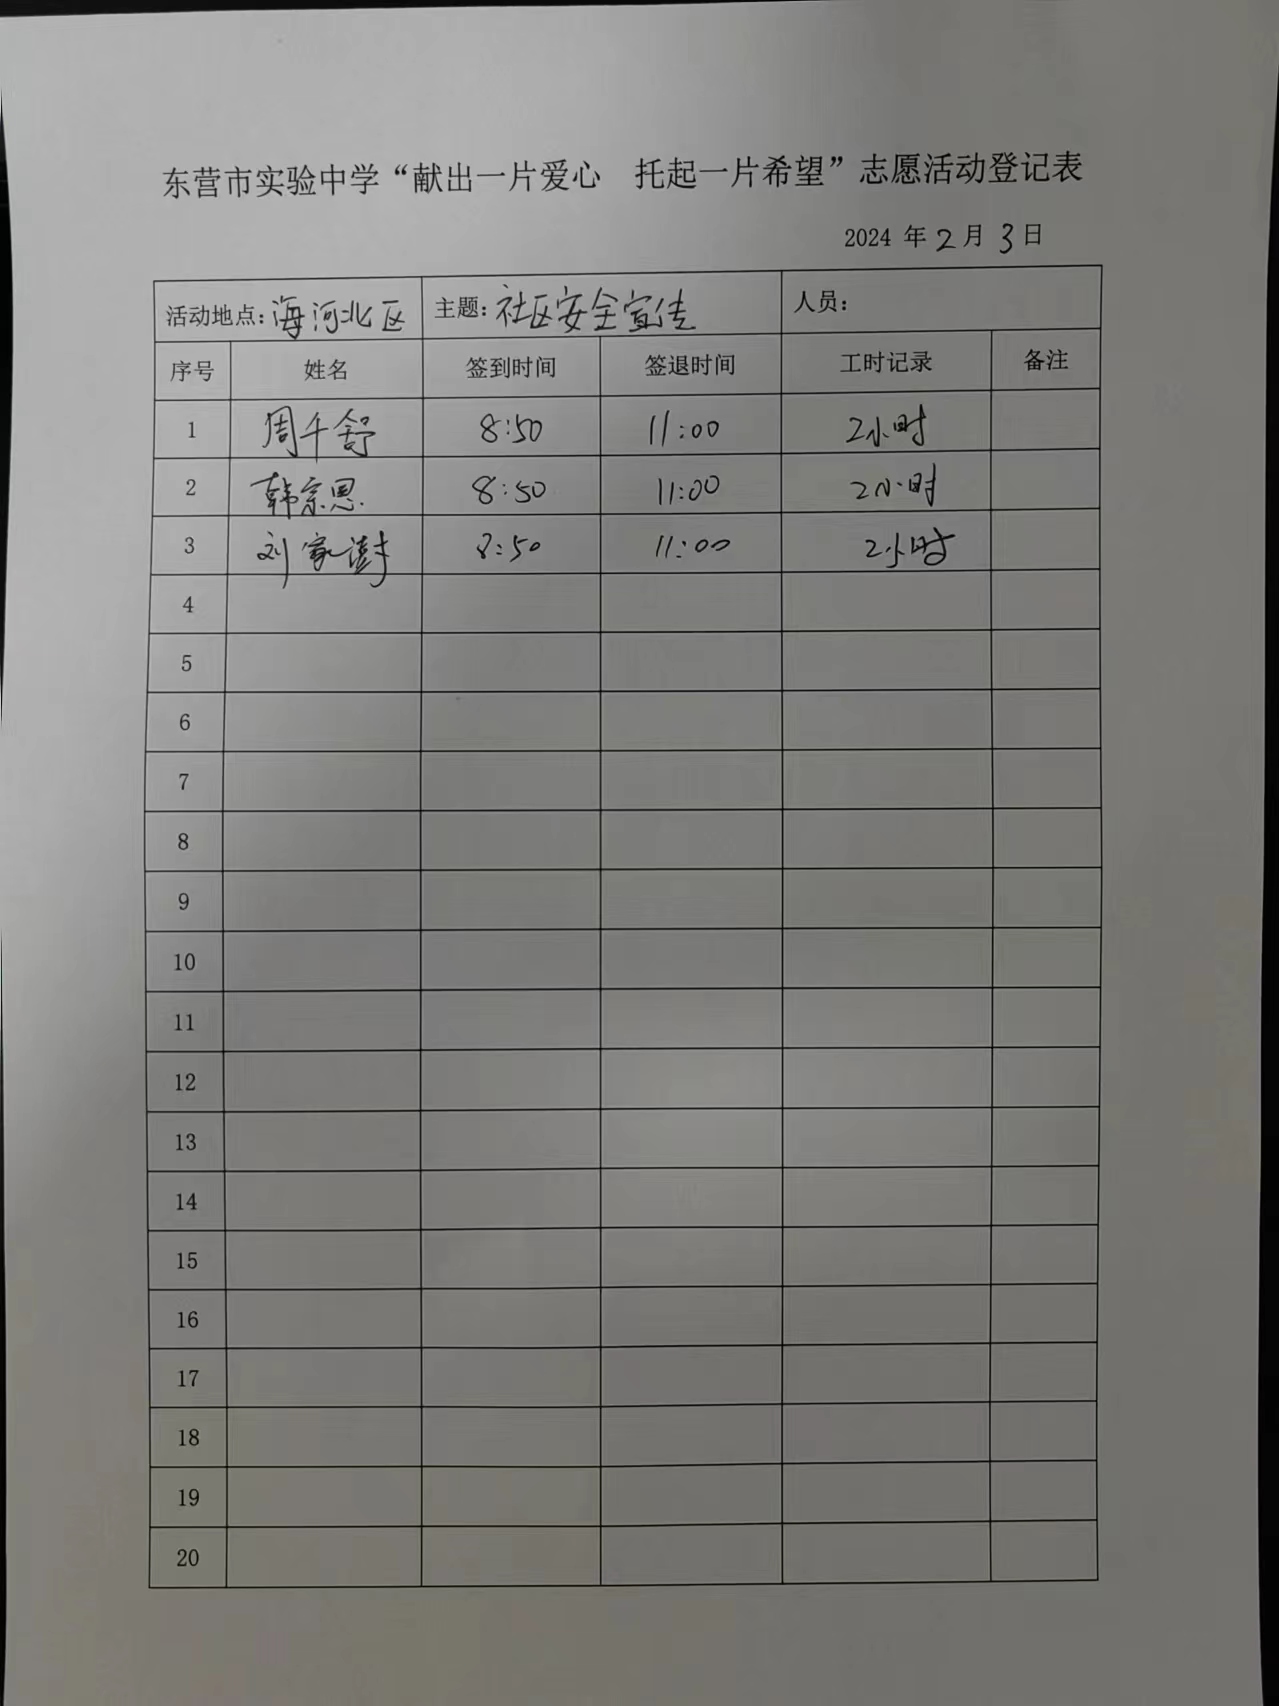 东营市实验中学“献出一片爱心　托起一片希望”志愿活动登记表
2024 年 2 月 3 日
活动地点:海河北区 主题:社区安全宣传 人员:
序号 姓名 签到时间 签退时间 工时记录 备注
1 周千舒 8:50 11:00 2小时
2 韩宗恩 8:50 11:00 2小时
3 刘家澍 8:50 11:00 2小时
4
5
6
7
8
9
10
11
12
13
14
15
16
17
18
19
20